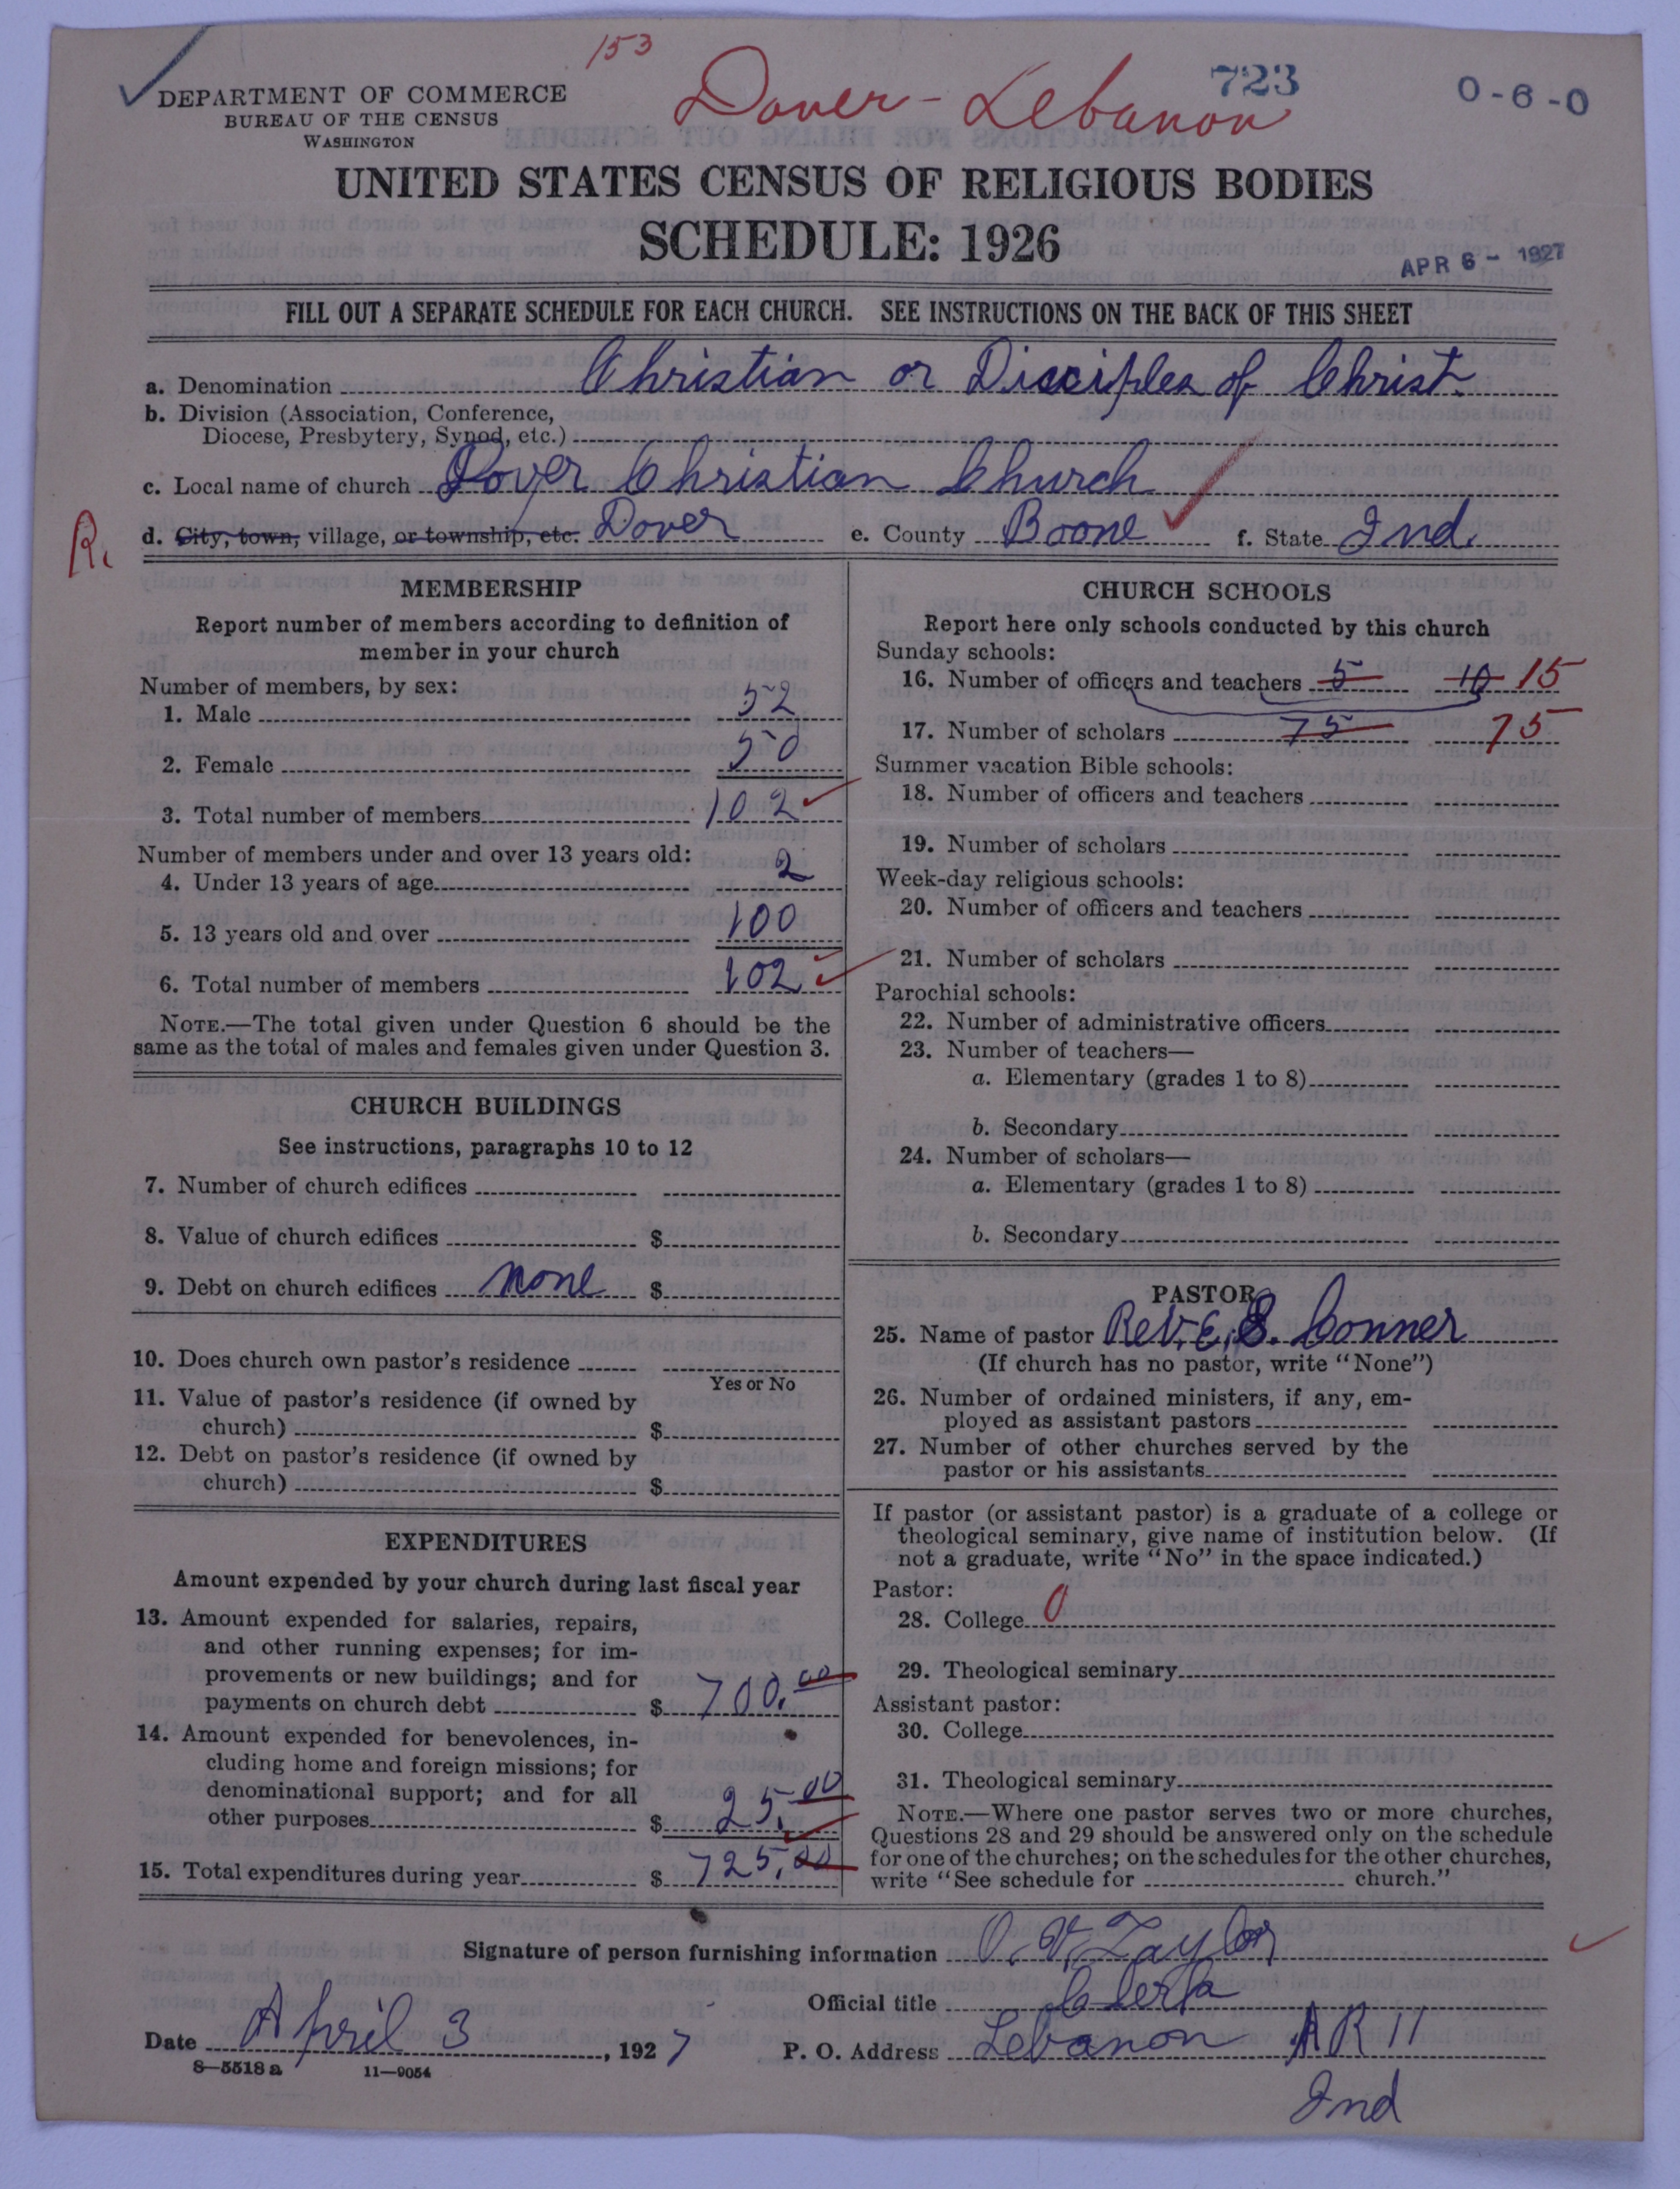 153
Dover - Lebanon
723
0-6-0
DEPARTMENT OF COMMERCE
BUREAU OF THE CENSUS
WASHINGTON
UNITED STATES CENSUS OF RELIGIOUS BODIES
SCHEDULE: 1926
APR 6 - 1927
FILL OUT A SEPARATE SCHEDULE FOR EACH CHURCH. SEE INSTRUCTIONS ON THE BACK OF THIS SHEET
a. Denomination Christian or Disciples of Christ.
b. Division (Association, Conference,
Diocese, Presbytery, Synod, etc.)
c. Local name of church Dover Christian Church
R.
d. City, town, village, or township, etc. Dover e. County Boone f. State Ind.
MEMBERSHIP
Report number of members according to definition of
member in your church
Number of members, by sex:
1. Male 52
2. Female 50
3. Total number of members 102
Number of members under and over 13 years old:
4. Under 13 years of age 2
5. 13 years old and over 100
6. Total number of members 102
NOTE.—The total given under Question 6 should be the
same as the total of males and females given under Question 3.
CHURCH BUILDINGS
See instructions, paragraphs 10 to 12
7. Number of church edifices
8. Value of church edifices $
9. Debt on church edifices none $
10. Does church own pastor's residence
Yes or No
11. Value of pastor's residence (if owned by
church) $
12. Debt on pastor's residence (if owned by
church) $
EXPENDITURES
Amount expended by your church during last fiscal year
13. Amount expended for salaries, repairs,
and other running expenses; for im-
provements or new buildings; and for
payments on church debt $ 700.00
14. Amount expended for benevolences, in-
cluding home and foreign missions; for
denominational support; and for all
other purposes $ 25.00
15. Total expenditures during year $ 725.00
CHURCH SCHOOLS
Report here only schools conducted by this church
Sunday schools:
16. Number of officers and teachers 5 10 15
17. Number of scholars 75 75
Summer vacation Bible schools:
18. Number of officers and teachers
19. Number of scholars
Week-day religious schools:
20. Number of officers and teachers
21. Number of scholars
Parochial schools:
22. Number of administrative officers
23. Number of teachers—
a. Elementary (grades 1 to 8)
b. Secondary
24. Number of scholars—
a. Elementary (grades 1 to 8)
b. Secondary
PASTOR
25. Name of pastor Rev. E. S. Conner
(If church has no pastor, write "None")
26. Number of ordained ministers, if any, em-
ployed as assistant pastors
27. Number of other churches served by the
pastor or his assistants
If pastor (or assistant pastor) is a graduate of a college or
theological seminary, give name of institution below. (If
not a graduate, write "No" in the space indicated.)
Pastor:
28. College 0
29. Theological seminary
Assistant pastor:
30. College
31. Theological seminary
NOTE.—Where one pastor serves two or more churches,
Questions 28 and 29 should be answered only on the schedule
for one of the churches; on the schedules for the other churches,
write "See schedule for church."
Signature of person furnishing information O. V. Taylor
Official title Clerk
Date April 3, 1927 P. O. Address Lebanon RR 11
Ind
8—5518 a 11—9054